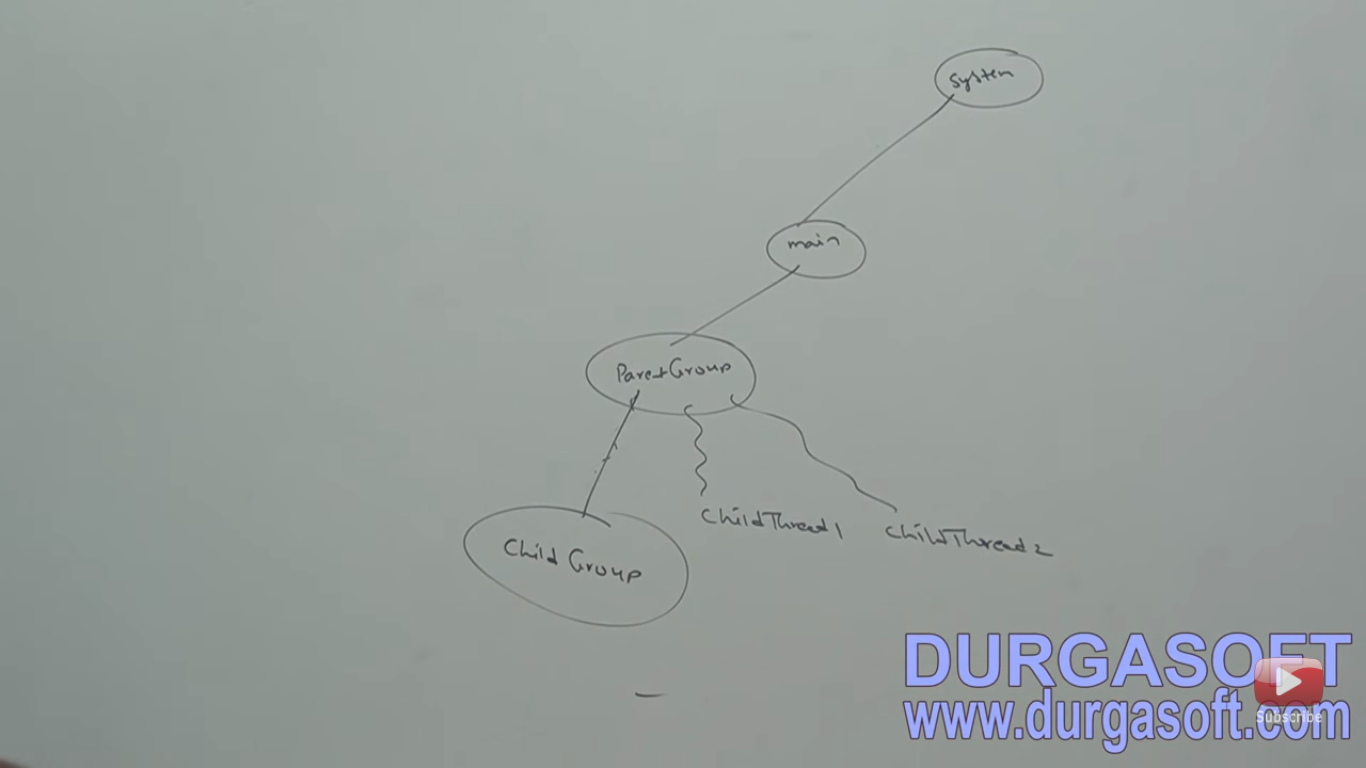 System
main
ParentGroup
Child Group
ChildThread1
ChildThread2
DURGASOFT
www.durgasoft.com
Subscribe